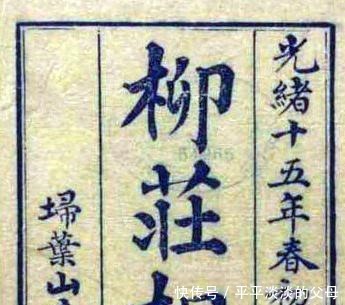 光緒十五年春
柳莊
埽葉山
快传号／平平淡淡的父母